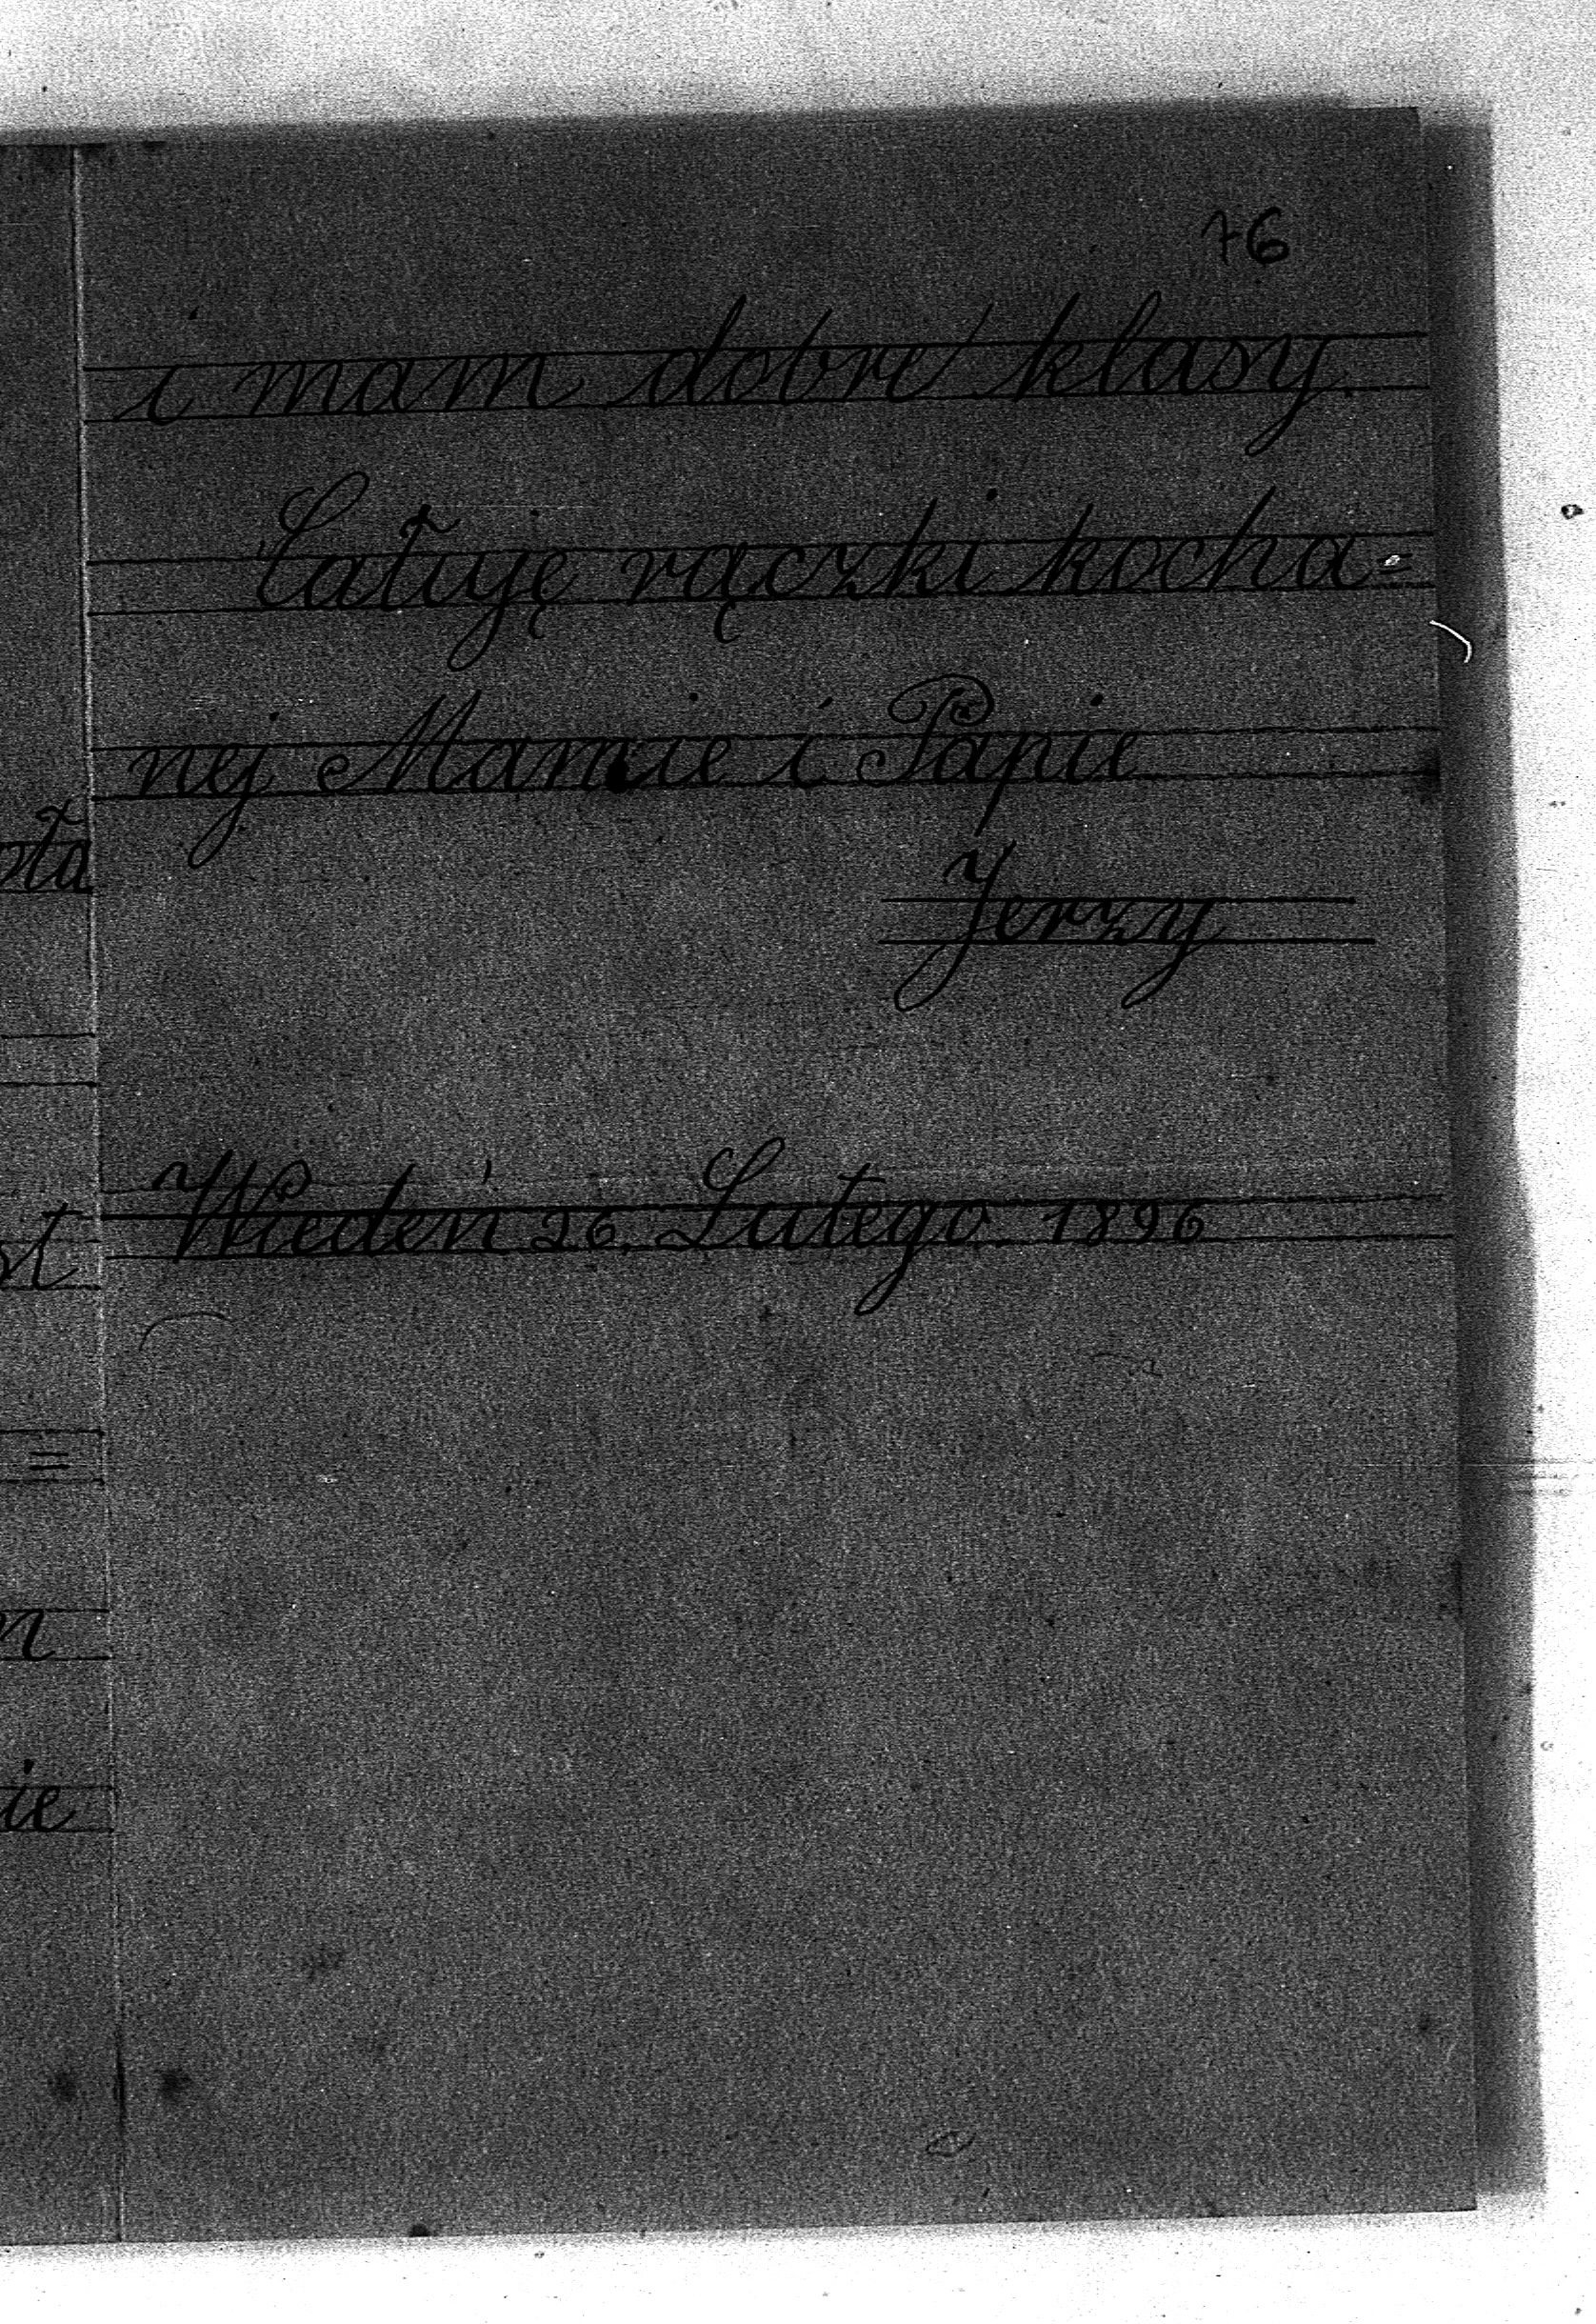 76
i mam dobre klasy.
Całuję rączki kocha=
nej Mamie i Papie
Jerzy
Wiedeń 26. Lutego 1896